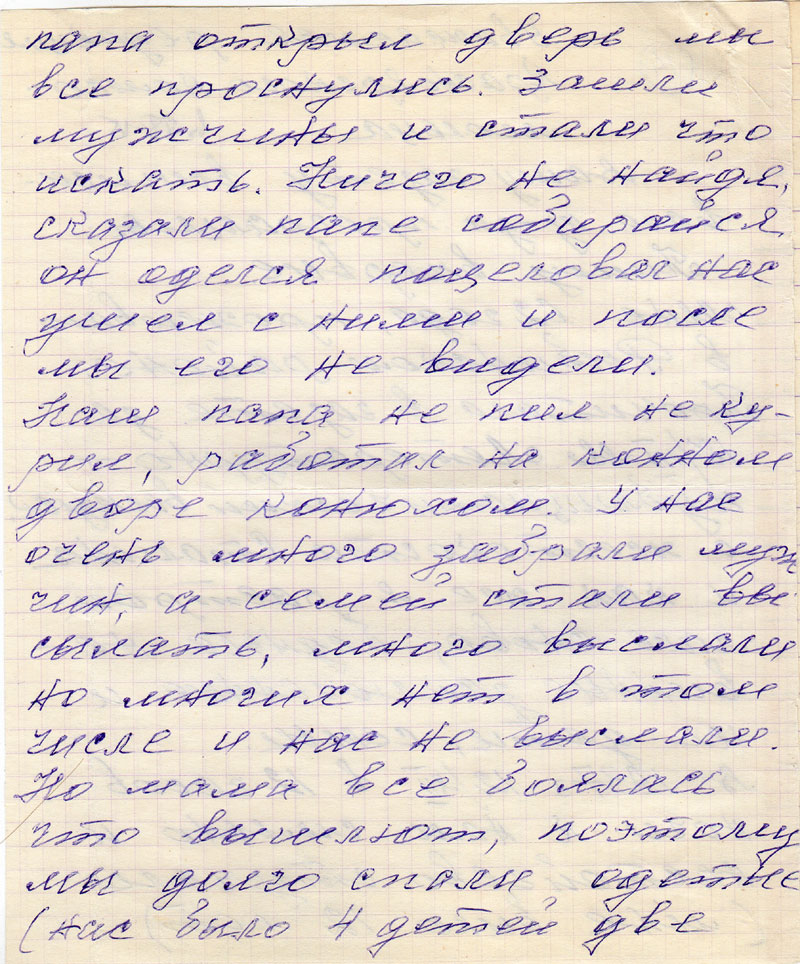 папа открыл дверь мы
все проснулись. Зашли
мужчины и стали что
искать. Ничего не найдя,
сказали папе собирайся,
он оделся поцеловал нас
ушел с ними и после
мы его не видели.
Наш папа не пил не ку-
рил, работал на конном
дворе конюхом. У нас
очень много забрали муж
чин, а семей стали вы
сылать, много выслали
но многих нет в том
числе и нас не выслали.
Но мама все боялась
что вышлют, поэтому
мы долго спали одетые
(нас было 4 детей две